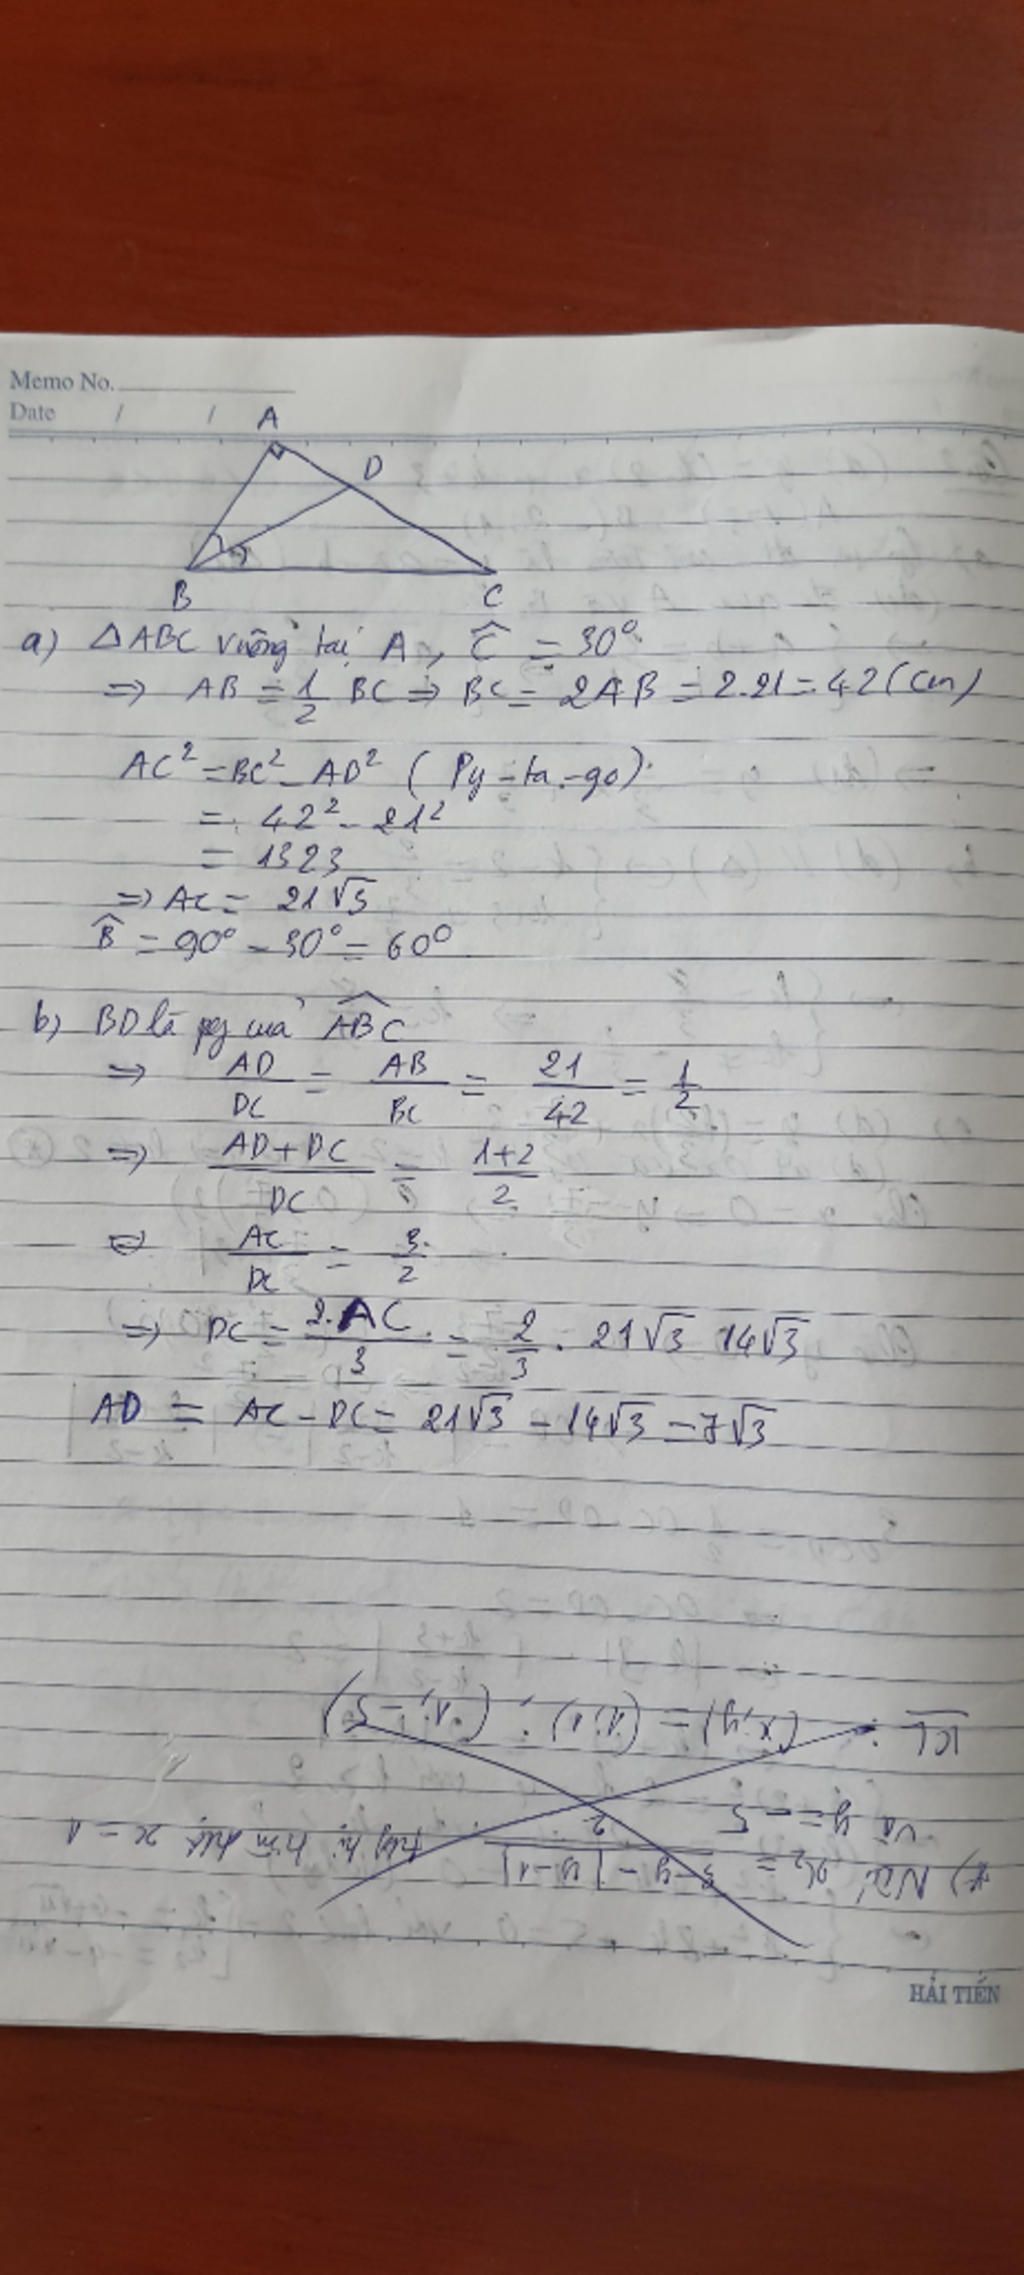 Memo No.
Date / /
A
D
B
C
a) △ABC vuông tại A, Ĉ = 30°
=> AB = 1/2 BC => BC = 2AB = 2.21 = 42 (cm)
AC² = BC² - AD² (Py-ta-go)
= 42² - 21²
= 1323
=> AC = 21√3
B̂ = 90° - 30° = 60°
b) BD là pg của ABC
=> AD/DC = AB/BC = 21/42 = 1/2
=> (AD+DC)/DC = (1+2)/2
<=> AC/DC = 3/2
=> DC = 2.AC/3 = 2/3 . 21√3 14√3
AD = AC - DC = 21√3 - 14√3 = 7√3
*) Với x₂ = (3-y-|y-1|)/2 x = 1
và y = -5
KL: (x,y) = (1;1); (1;-5)
HẢI TIẾN